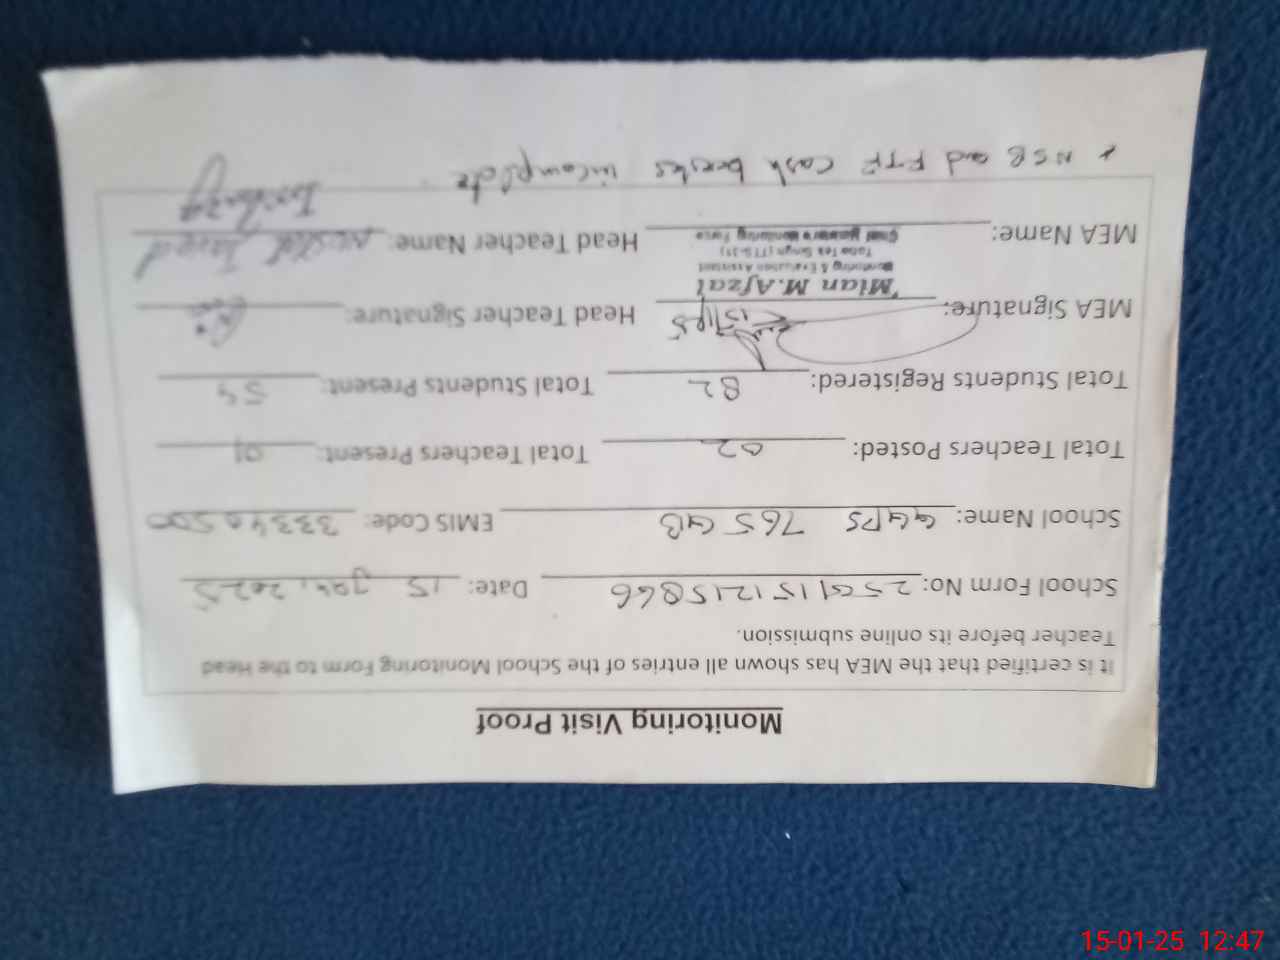 Monitoring Visit Proof
It is certified that the MEA has shown all entries of the School Monitoring Form to the Head
Teacher before its online submission.
School Form No: 2501151215866 Date: 15 Jan, 2025
School Name: GGPS 765 GB EMIS Code: 33340500
Total Teachers Posted: 02 Total Teachers Present: 01
Total Students Registered: 82 Total Students Present: 54
MEA Signature: 15/1/25 Head Teacher Signature:
Mian M.Afzal
Monitoring & Evaluation Assistant
Toba Tek Singh (TTS-31)
MEA Name: Head Teacher Name: Javed
* NSB and FTF cash books incomplete
15-01-25 12:47